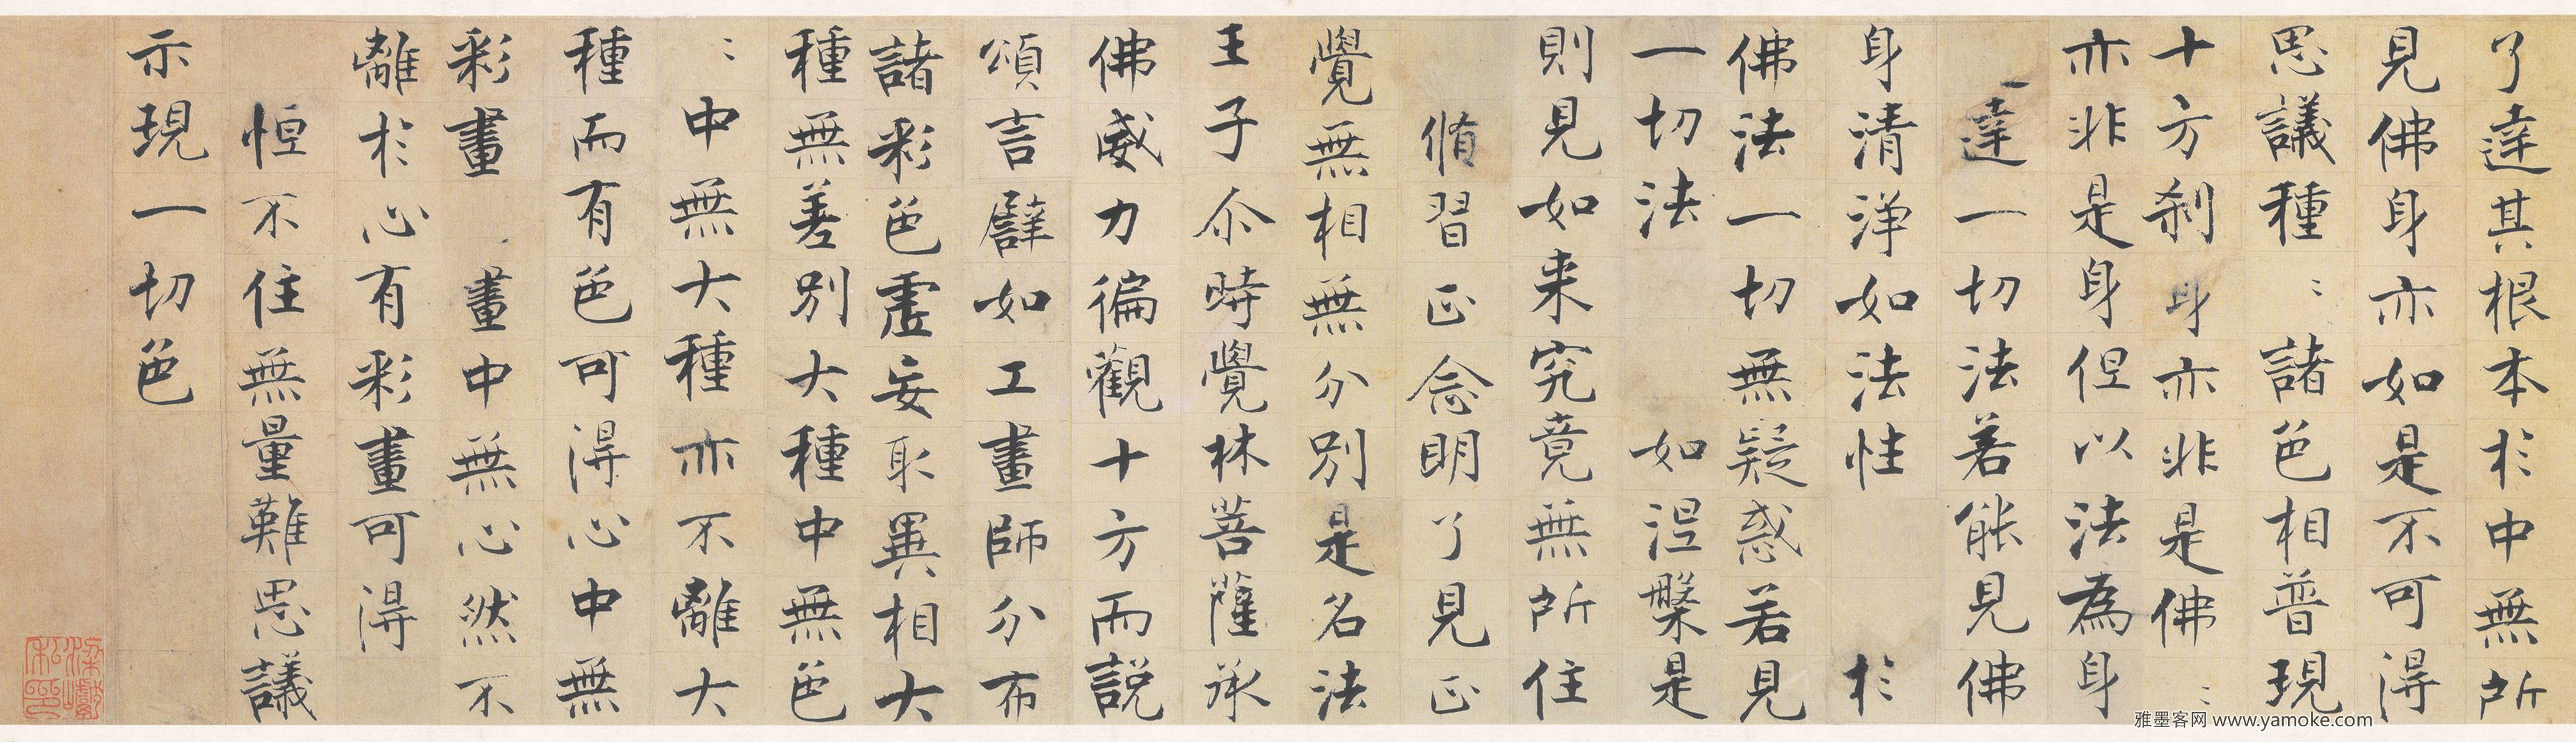 了達其根本於中無所
見佛身亦如是不可得
思議種〻諸色相普現
十方剎身亦非是佛〻
亦非是身但以法為身
達一切法若能見佛
身清淨如法性 於
佛法一切無疑惑若見
一切法 如涅槃是
則見如来究竟無所住
脩習正念明了見正
覺無相無分別是名法
王子尒時覺林菩薩承
佛威力徧觀十方而説
頌言譬如工畫師分布
諸彩色虛妄取異相大
種無差別大種中無色
〻中無大種亦不離大
種而有色可得心中無
彩畫 畫中無心然不
離於心有彩畫可得
恒不住無量難思議
示現一切色
雅墨客网 www.yamoke.com